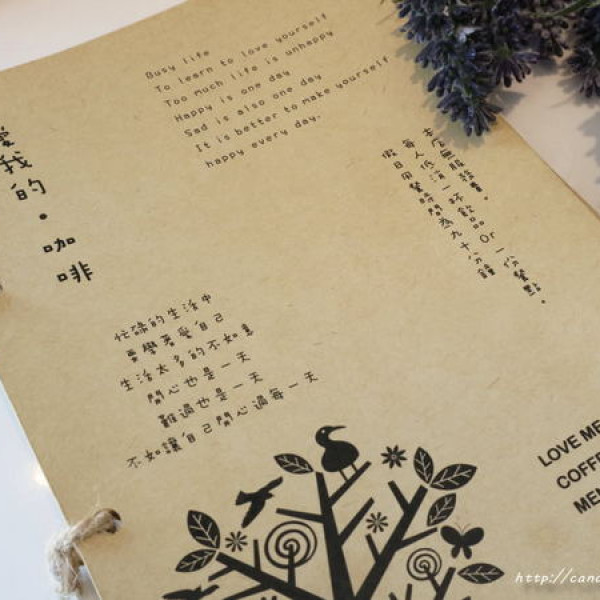 Busy life
To learn to love yourself
Too much life is unhappy
Happy is one day
Sad is also one day
It is better to make yourself
happy every day.
愛我的·咖啡
本店無服務費。
每人低消一杯飲品 or 一份餐點。
假日用餐時間為九十分鐘
忙碌的生活中
要學著愛自己
生活太多的不如意
開心也是一天
難過也是一天
不如讓自己開心過每一天
LOVE ME
COFFE
MEN
http://cand